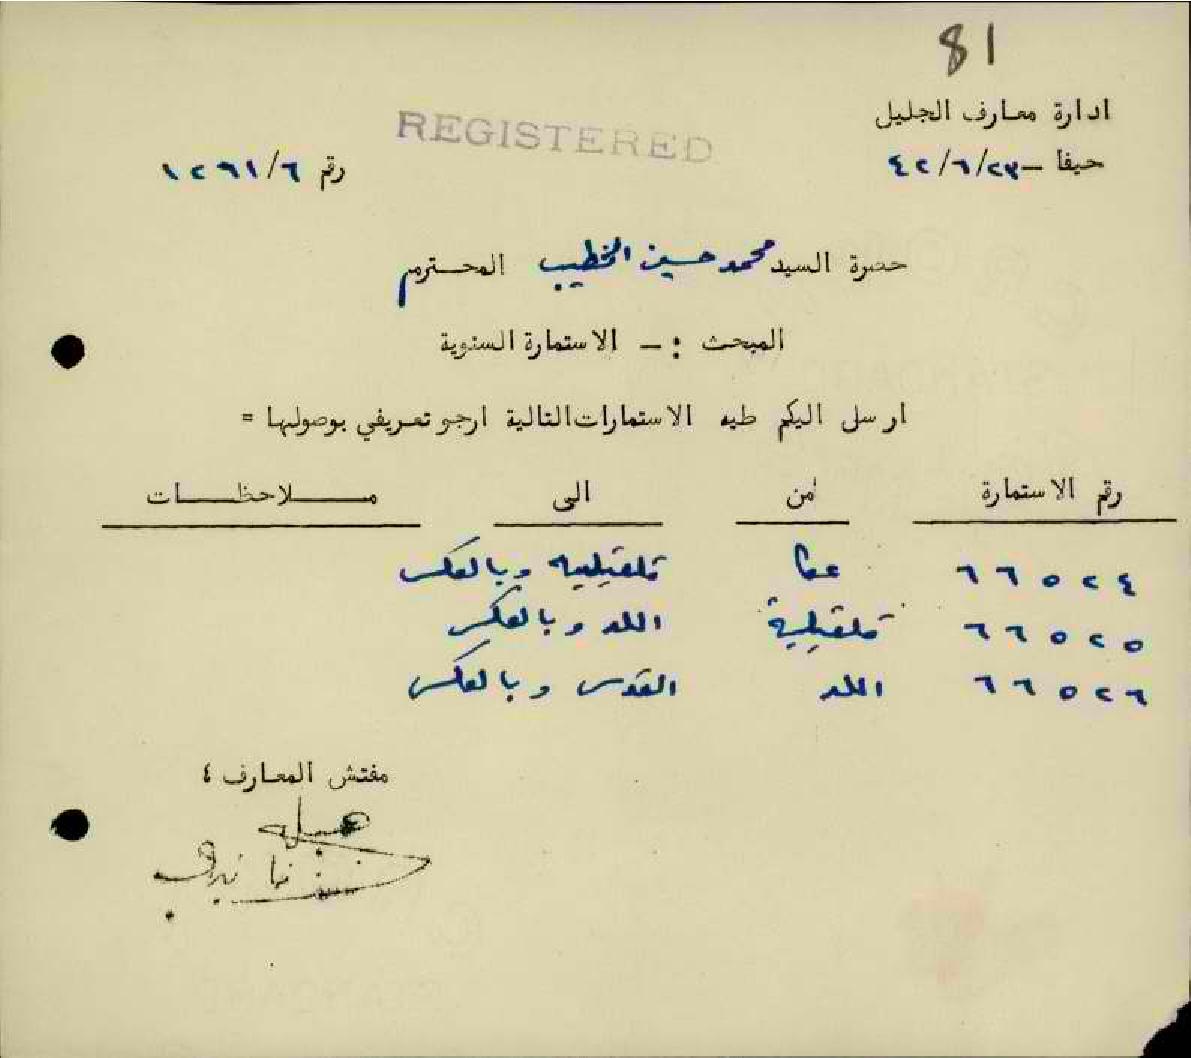 81
ادارة معارف الجليل
REGISTERED
حيفا - ٤٢/٦/٢٣
رقم ١٢٩١/٦
حضرة السيد محمد حسين الخطيب المحترم
المبحث :- الاستمارة السنوية
ارسل اليكم طيه الاستمارات التالية ارجو تعريفي بوصولها =
رقم الاستمارة من الى ملاحظات
٦٦٥٢٤ عكا قلقيلية وبالعكس
٦٦٥٢٥ قلقيلية اللد وبالعكس
٦٦٥٢٦ اللد القدس وبالعكس
مفتش المعارف ،